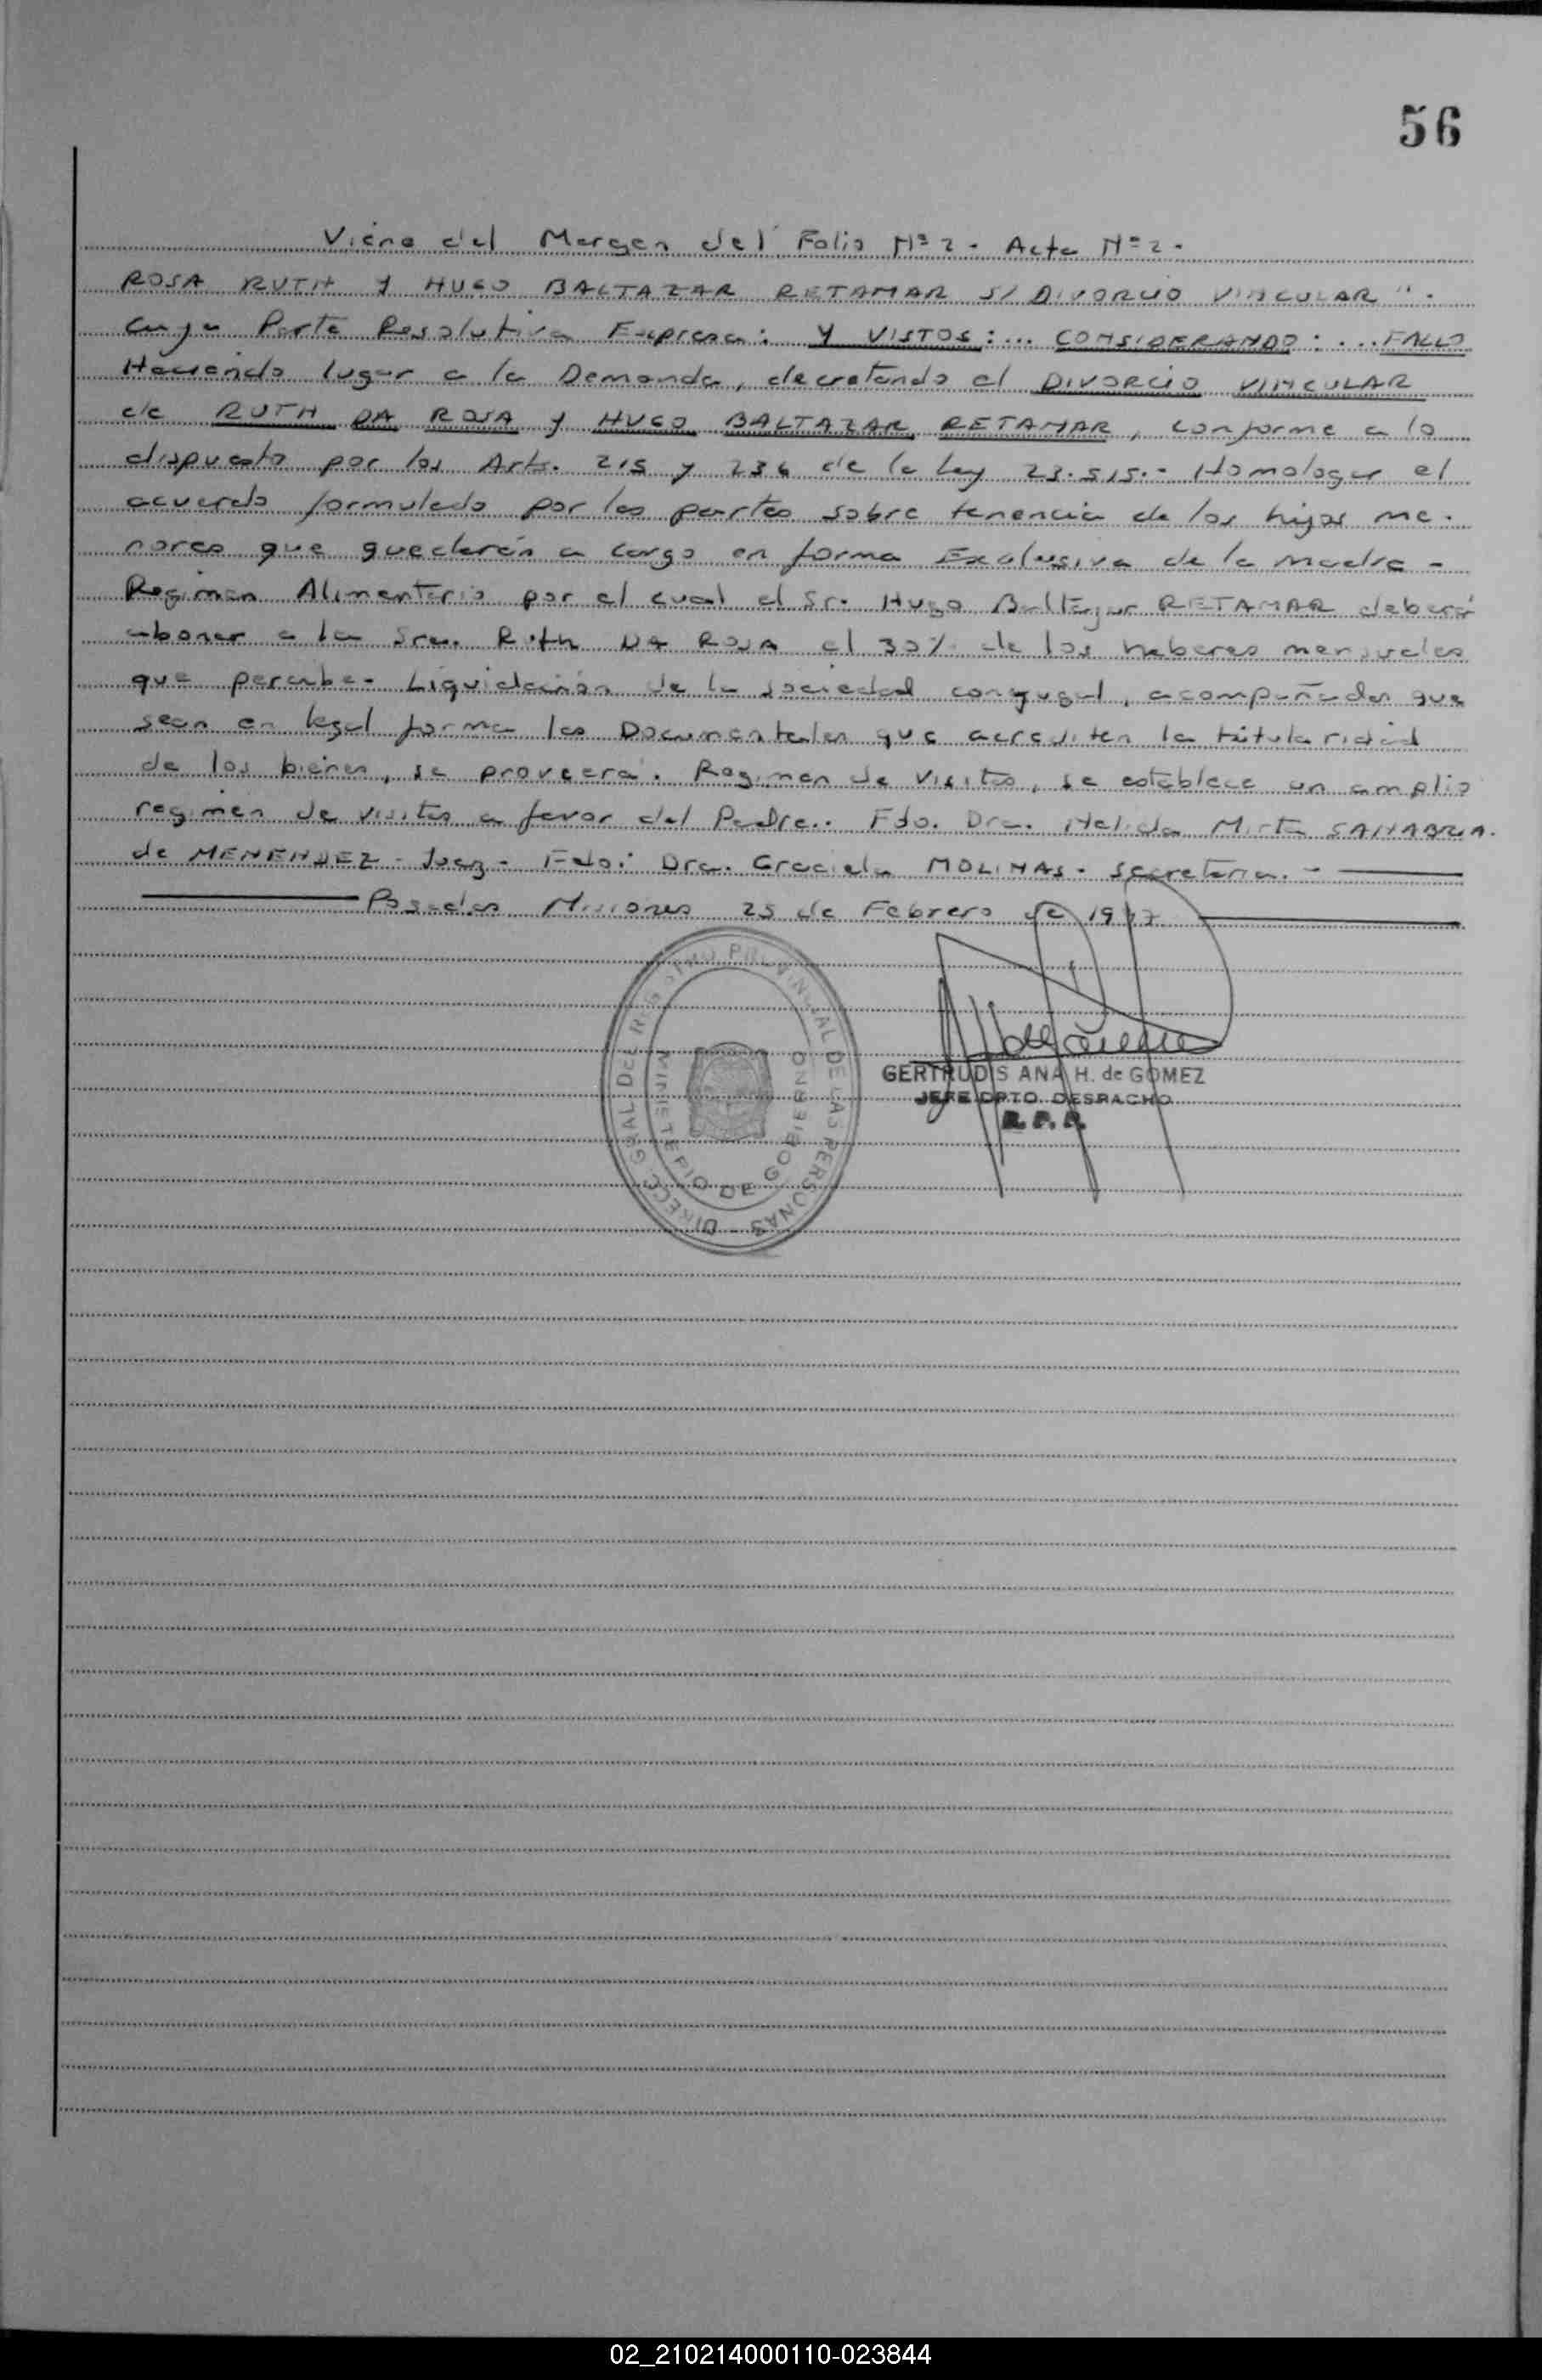 56
Viene del Margen del Folio Nº 2 - Acta Nº 2 -
ROSA RUTH Y HUGO BALTAZAR RETAMAR S/ DIVORCIO VINCULAR".
Cuya Parte Resolutiva Expresa: Y VISTOS:... CONSIDERANDO:... FALLO
Haciendo lugar a la Demanda, decretando el DIVORCIO VINCULAR
de RUTH DA ROSA y HUGO BALTAZAR RETAMAR, conforme a lo
dispuesto por los Arts. 215 y 236 de la Ley 23.515.- Homologar el
acuerdo formulado por las partes sobre tenencia de los hijos me-
nores que quedarán a cargo en forma Exclusiva de la madre -
Regimen Alimentario por el cual el Sr. Hugo Baltazar RETAMAR deberá
abonar a la Sra. Ruth DA ROSA el 30% de los haberes mensuales
que percibe- Liquidación de la sociedad conyugal, acompañadas que
sean en legal forma las Documentales que acrediten la titularidad
de los bienes, se proveerá. Regimen de visitas, se establece un amplio
regimen de visitas a favor del Padre.. Fdo. Dra. Nelida Mirta SANABRIA
de MENENDEZ - Juez - Fdo: Dra. Graciela MOLINAS - Secretaria. -
Posadas Misiones 25 de Febrero de 1997
DIRECC. GRAL. DEL REGISTRO PROVINCIAL DE LAS PERSONAS
MINISTERIO DE GOBIERNO
GERTRUDIS ANA H. de GOMEZ
JEFE DPTO. DESPACHO
R. P. P.
02_210214000110-023844